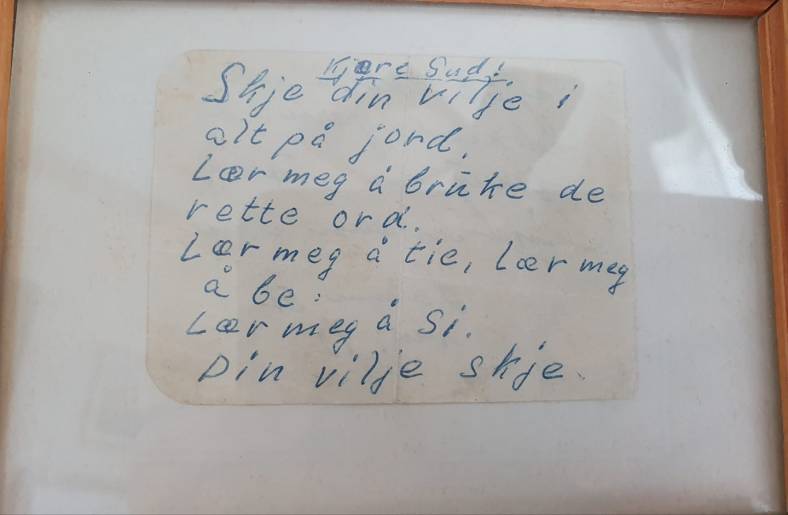 Kjære Gud!
Skje din vilje i
alt på jord.
Lær meg å bruke de
rette ord.
Lær meg å tie, Lær meg
å be:
Lær meg å si.
Din vilje skje.